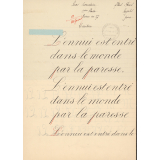 L'ennui est entré
dans le monde
par la paresse.
L'ennui est entré
dans le monde
par la paresse.
L'ennui est entré dans le